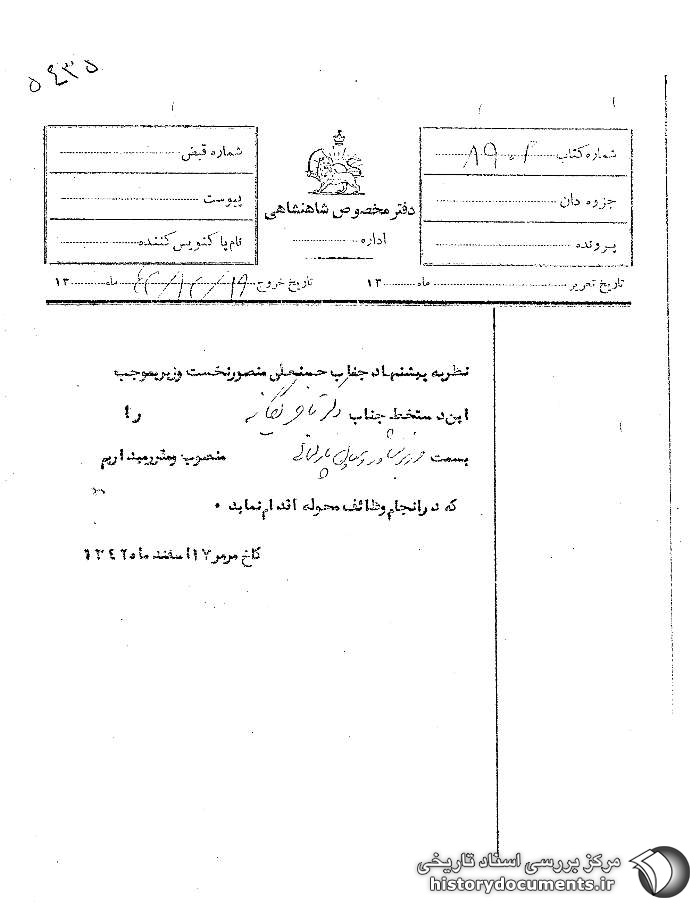 ۵۴۳۵
شماره کتاب ۸۹۰۲
جزوه دان
پرونده
دفتر مخصوص شاهنشاهی
اداره
شماره قبض
پیوست
نام پاکنویس کننده
تاریخ تحریر ماه ۱۳
تاریخ خروج ماه ۱۳
نظر به پیشنهاد جناب حسنعلی منصور نخست وزیر بموجب
این دستخط جناب دکتر ناصر یگانه را
بسمت وزیر مشاور پارلمانی منصوب و مقرر میداریم
که در انجام وظائف محوله اقدام نماید ۰
کاخ مرمر ۱۷ اسفند ماه ۱۳۴۲
مرکز بررسی اسناد تاریخی
historydocuments.ir